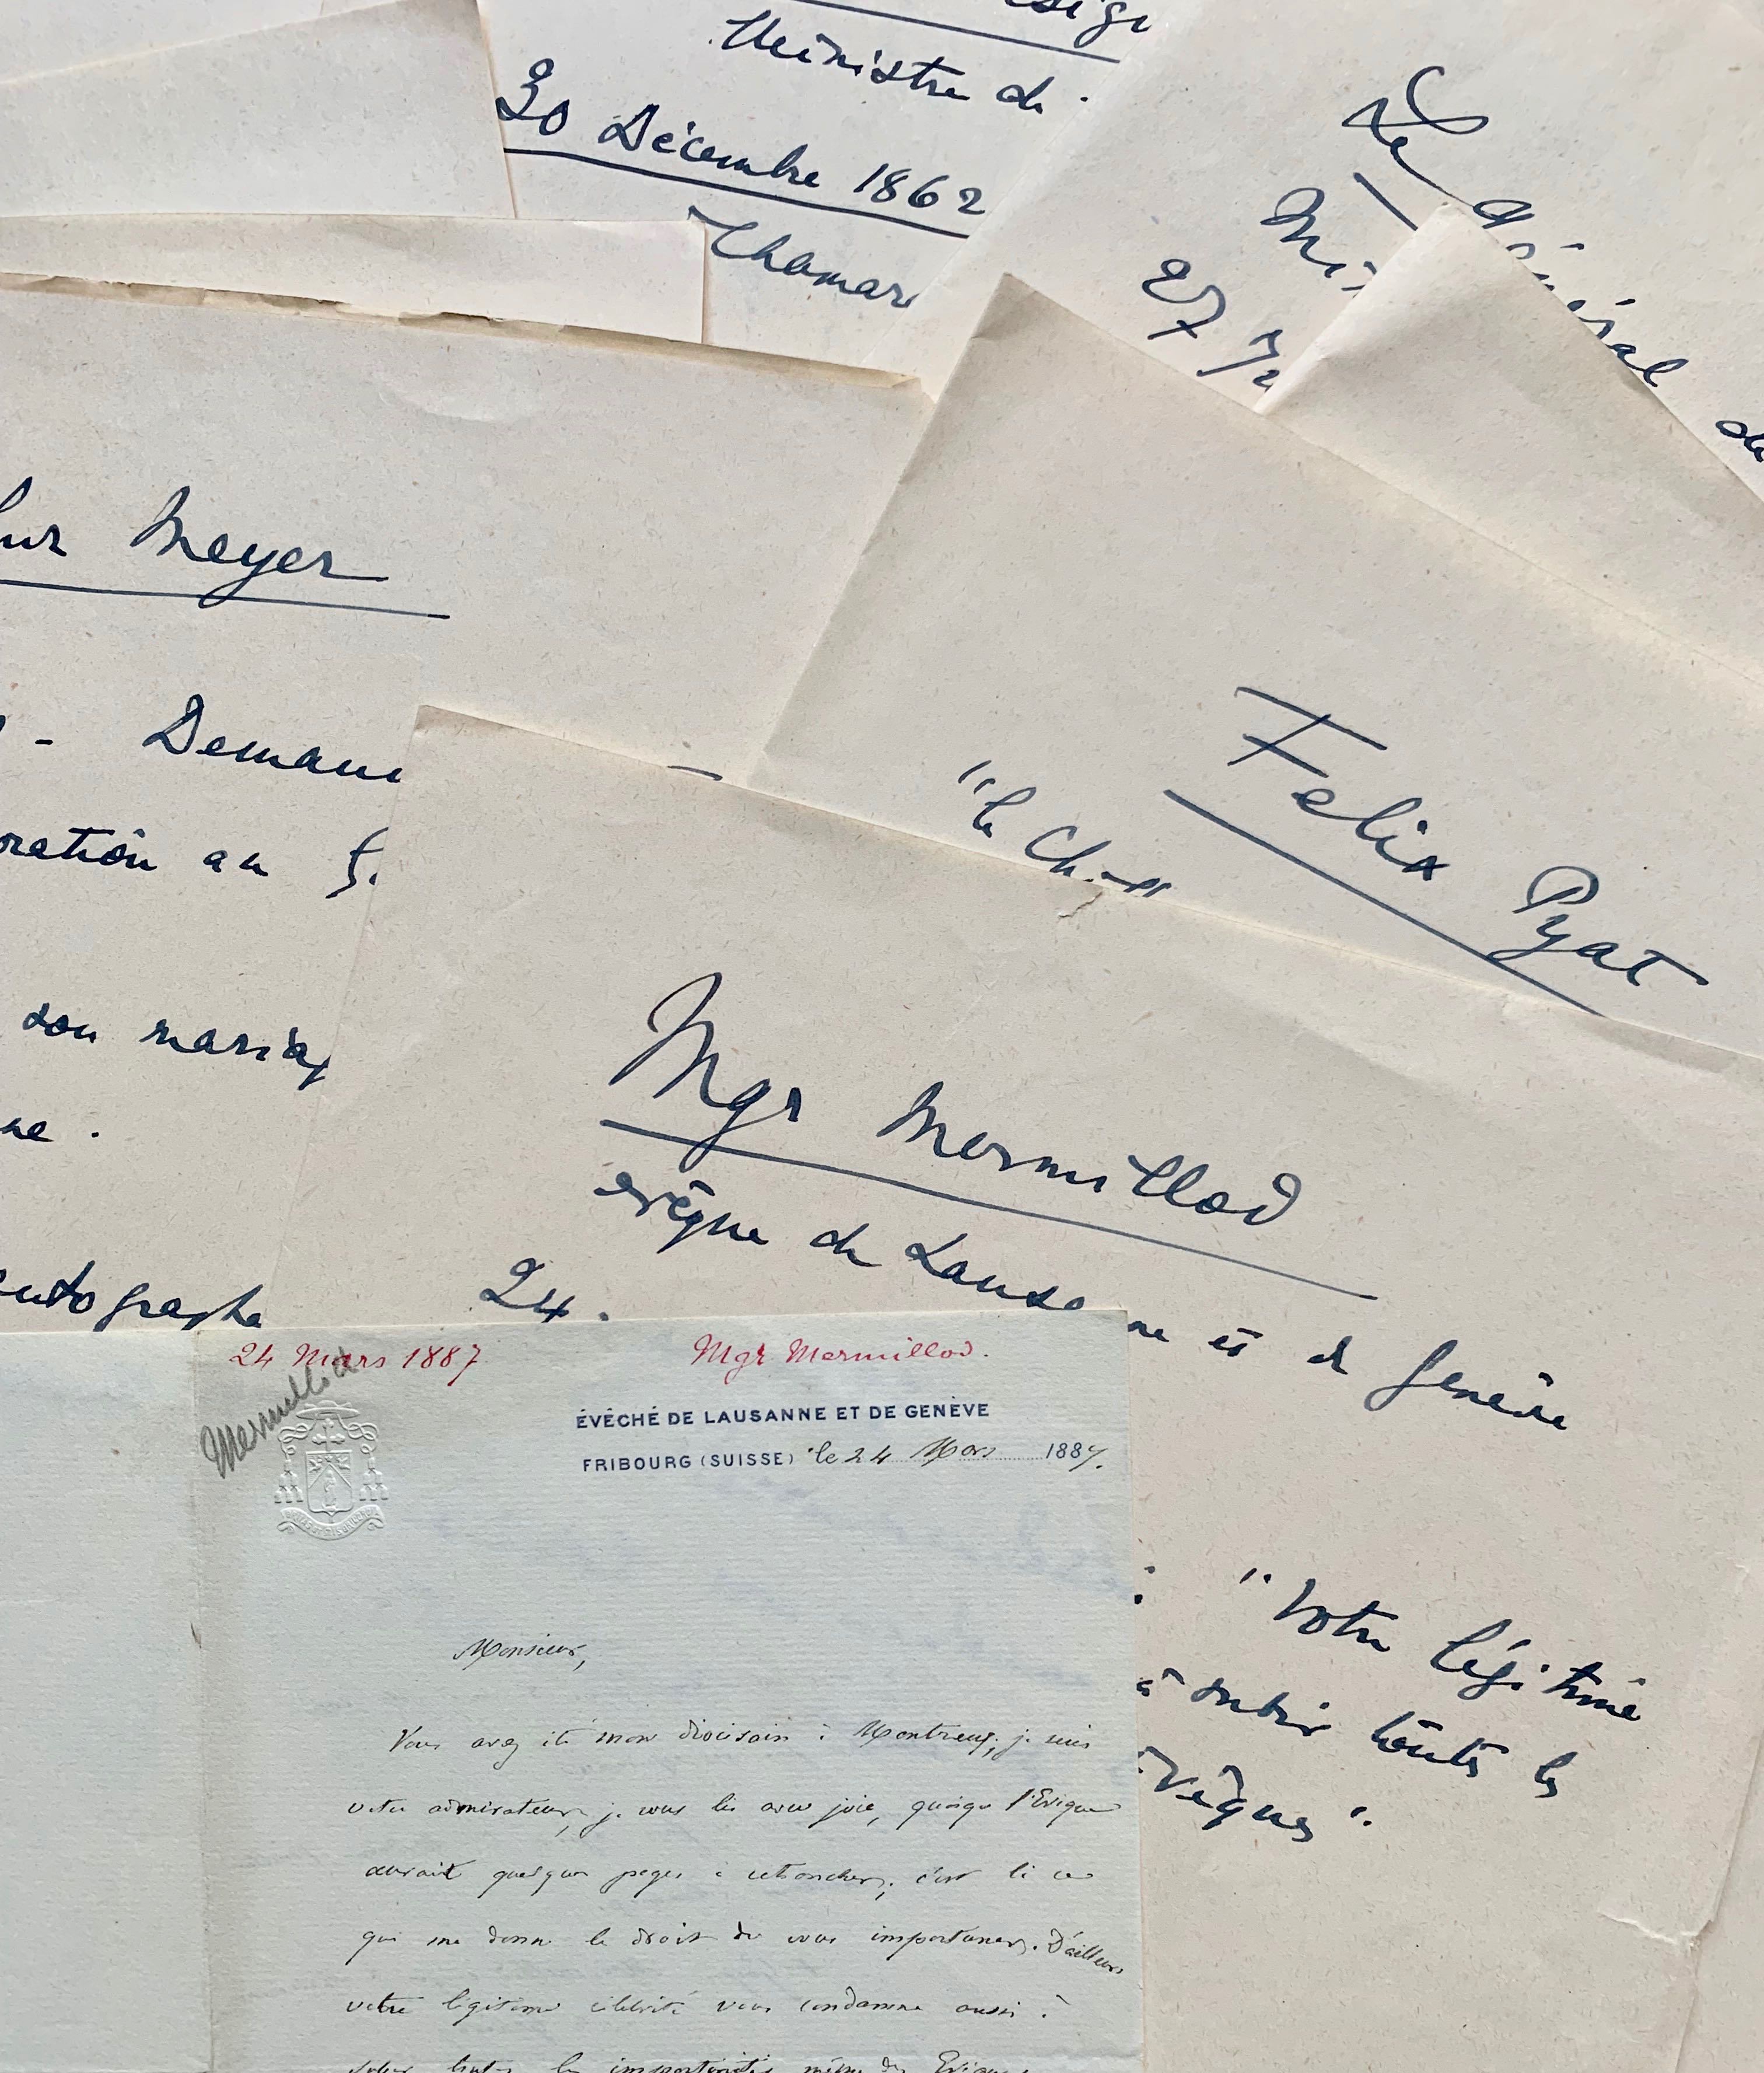 Ministre de
30 Décembre 1862
Le Général de
27
Meyer
-
ration au
son
autographe
Felix Pyat
"le
Mgr Mermillod
évêque de Lausanne et de Genève
24
: "Votre légitime
à subir toutes les
évêques".
24 Mars 1887 Mgr Mermillod.
Mermillod
ÉVÊCHÉ DE LAUSANNE ET DE GENÈVE
FRIBOURG (SUISSE) le 24 Mars 1887.
Monsieur,
Vous avez été mon diocésain à Montreux; je suis
votre admirateur, je vous lis avec joie, quoique l'Evêque
aurait quelques pages à retoucher; c'est là ce
qui me donne le droit de vous importuner. D'ailleurs
votre légitime célébrité vous condamne aussi à
subir toutes les importunités même des Evêques